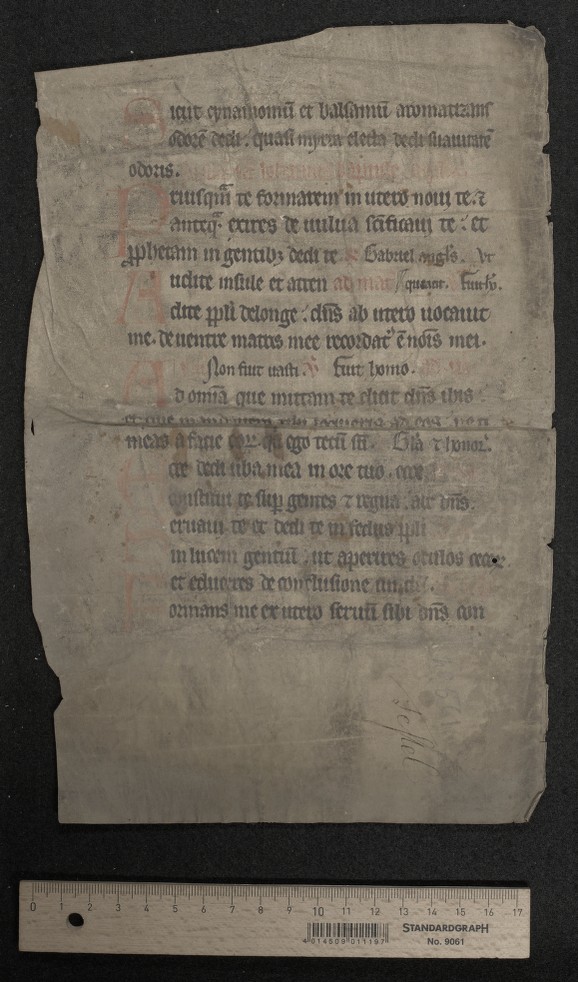 Sicut cynamomū et balsamū aromatizans
odorē dedi. quasi myrra electa dedi suauitatē
odoris.
Priusquā te formarem in utero noui te. ⁊
anteq̄ exires de uulua sc̄ificaui te : et
ꝓphetam in gentibꝫ dedi te Gabriel angl's. Vt
Audite insule et atten queant. Fuit ho.
dite ppl'i delonge : dn̄s ab utero uocauit
me. de uentre matris mee recordatꝰ ē nōis mei.
Non fuit uasti. ℣ Fuit homo.
Ad omīa que mittam te dicit dn̄s ibis
meas a facie eoꝝ. qꝛ ego tecū sū. Gl'a ⁊ honor.
Ecce dedi uba mea in ore tuo. ecce
constitui te suꝑ gentes ⁊ regna. ait dn̄s.
eruaui te et dedi te in fedus ppl'i
in lucem gentiū. ut aperires oculos ceco
et educeres de conclusione
Formans me ex utero seruū sibi dn̄s con
0 1 2 3 4 5 6 7 8 9 10 11 12 13 14 15 16 17
4 014509 011197
STANDARDGRAPH
No. 9061